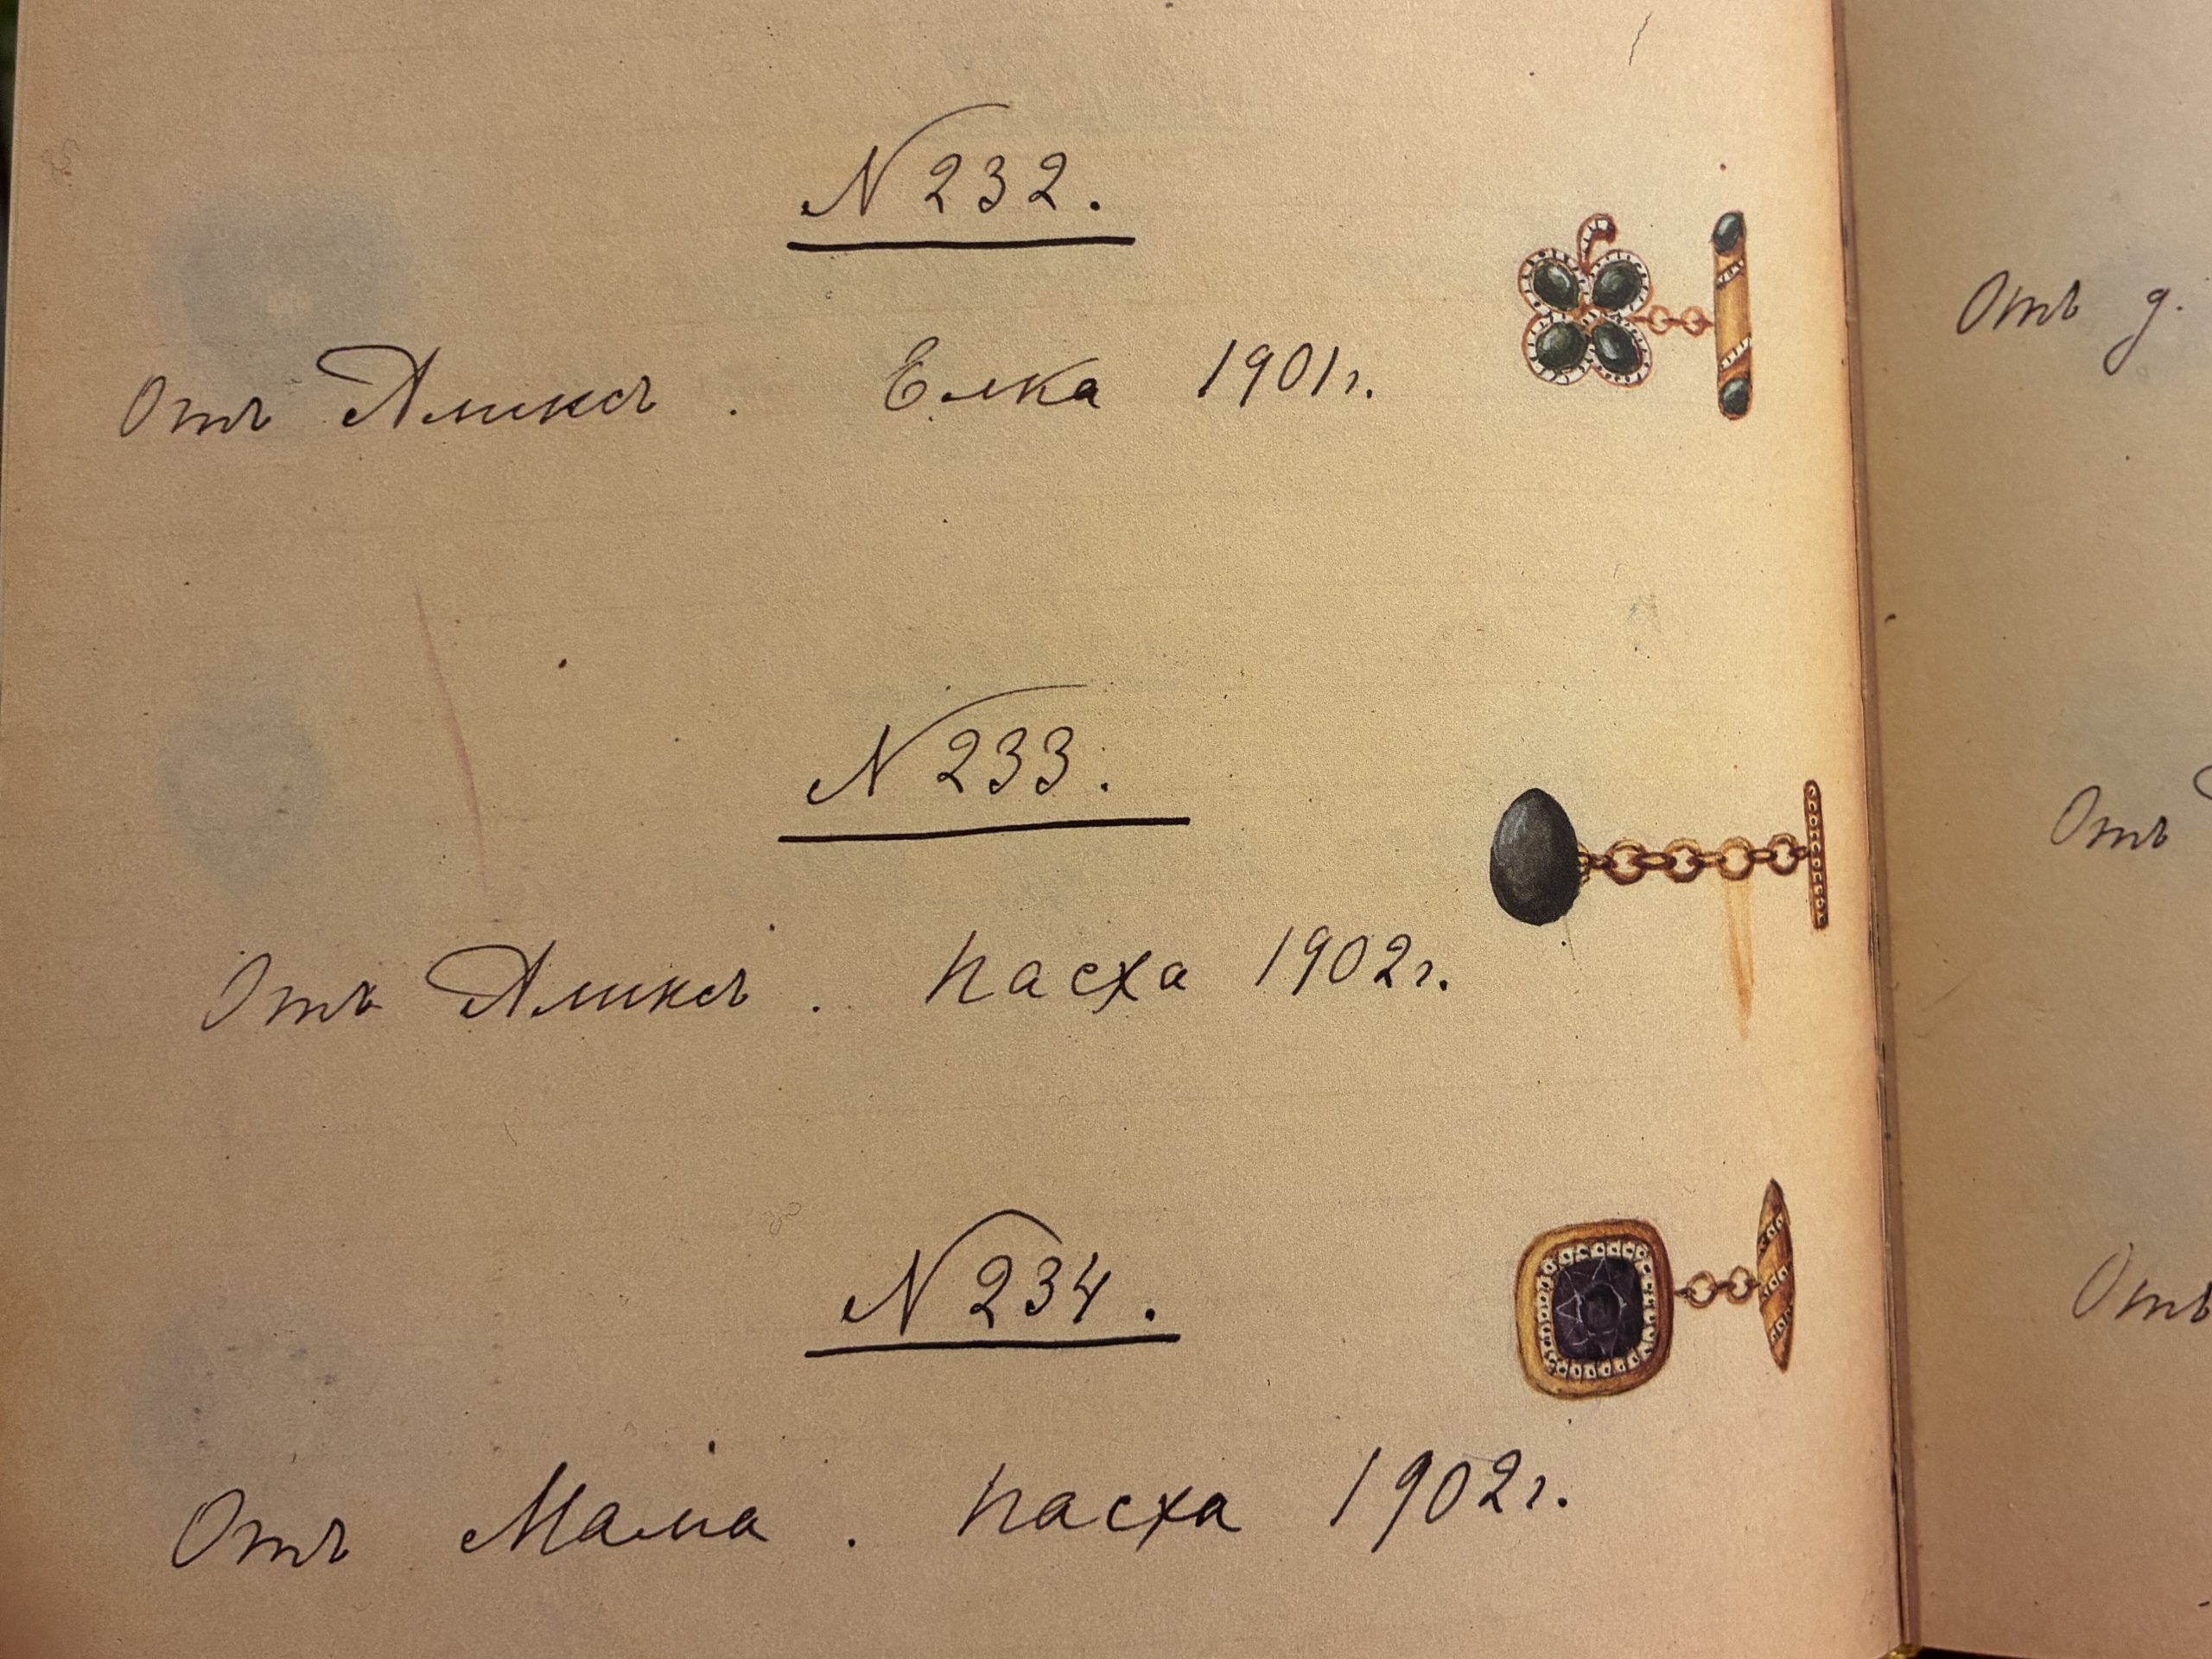 N 232.
Отъ Аликсъ. Елка 1901г.
N 233.
Отъ Аликсъ. Пасха 1902г.
N 234.
Отъ Мама. Пасха 1902г.
Отъ д.
Отъ
Отъ